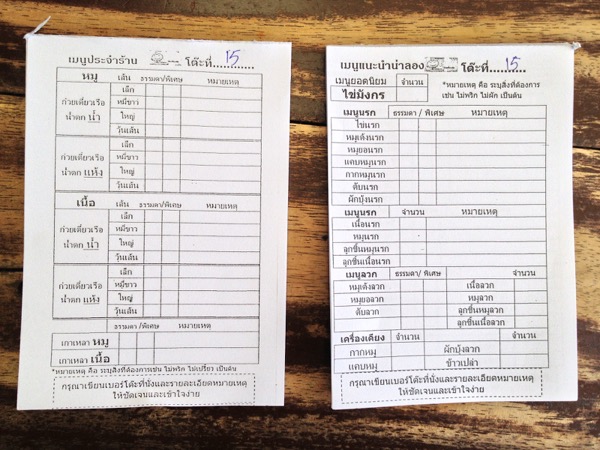 เมนูประจำร้าน โต๊ะที่............ 15
หมู เส้น ธรรมดา/พิเศษ หมายเหตุ
ก๋วยเตี๋ยวเรือ
น้ำตก น้ำ
เล็ก
หมี่ขาว
ใหญ่
วุ้นเส้น
ก๋วยเตี๋ยวเรือ
น้ำตก แห้ง
เล็ก
หมี่ขาว
ใหญ่
วุ้นเส้น
เนื้อ เส้น ธรรมดา/พิเศษ หมายเหตุ
ก๋วยเตี๋ยวเรือ
น้ำตก น้ำ
เล็ก
หมี่ขาว
ใหญ่
วุ้นเส้น
ก๋วยเตี๋ยวเรือ
น้ำตก แห้ง
เล็ก
หมี่ขาว
ใหญ่
วุ้นเส้น
ธรรมดา /พิเศษ หมายเหตุ
เกาเหลา หมู
เกาเหลา เนื้อ
*หมายเหตุ คือ ระบุสิ่งที่ต้องการเช่น ไม่พริก ไม่เปรี้ยว เป็นต้น
กรุณาเขียนเบอร์โต๊ะที่นั่งและรายละเอียดหมายเหตุ
ให้ชัดเจนและเข้าใจง่าย
เมนูแนะนำน่าลอง โต๊ะที่.......... 15
เมนูยอดนิยม จำนวน
ไข่มังกร
*หมายเหตุ คือ ระบุสิ่งที่ต้องการ
เช่น ไม่พริก ไม่ผัก เป็นต้น
เมนูนรก ธรรมดา/ พิเศษ หมายเหตุ
ไข่นรก
หมูเด้งนรก
หมูยอนรก
แคบหมูนรก
กากหมูนรก
ตับนรก
ผักบุ้งนรก
เมนูนรก จำนวน หมายเหตุ
เนื้อนรก
หมูนรก
ลูกชิ้นหมูนรก
ลูกชิ้นเนื้อนรก
เมนูลวก ธรรมดา/ พิเศษ จำนวน
หมูเด้งลวก เนื้อลวก
หมูยอลวก หมูลวก
ตับลวก ลูกชิ้นหมูลวก
ลูกชิ้นเนื้อลวก
เครื่องเคียง จำนวน จำนวน
กากหมู ผักบุ้งลวก
แคบหมู ข้าวเปล่า
กรุณาเขียนเบอร์โต๊ะที่นั่งและรายละเอียดหมายเหตุ
ให้ชัดเจนและเข้าใจง่าย